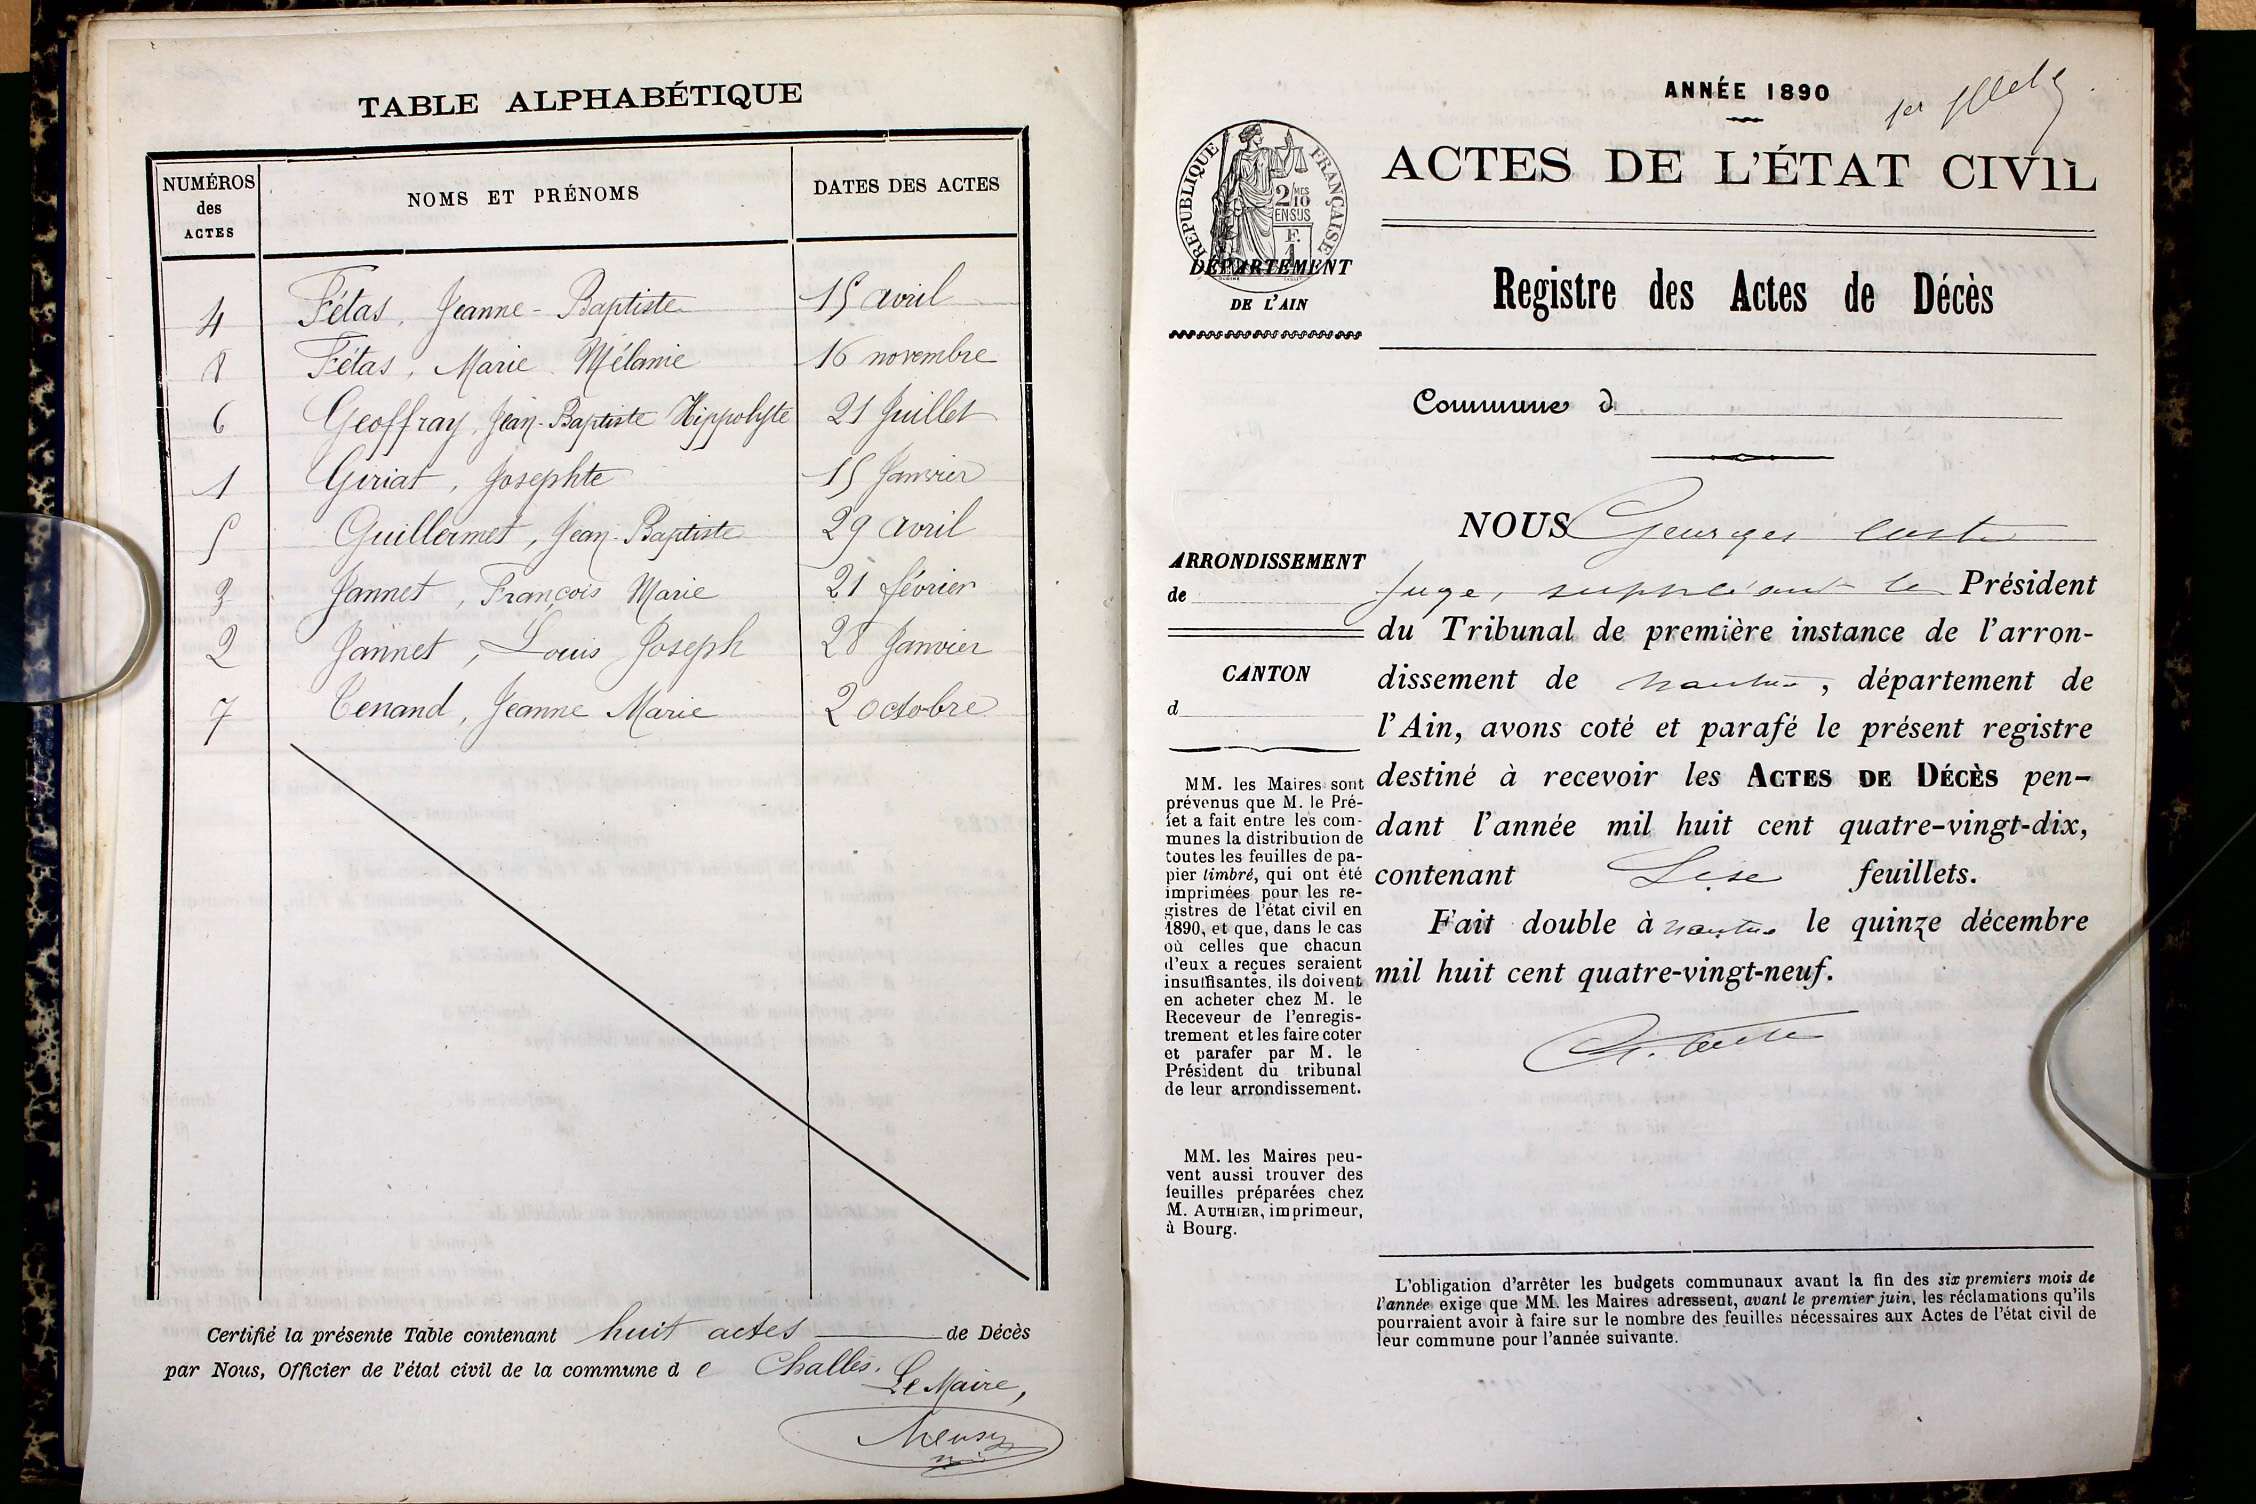 TABLE ALPHABÉTIQUE
NUMÉROS des ACTES
NOMS ET PRÉNOMS
DATES DES ACTES
4 Fétas, Jeanne-Baptiste 15 avril
8 Fétas, Marie Mélanie 16 novembre
6 Geoffray, Jean-Baptiste Hippolyte 21 Juillet
1 Giriat, Josephte 15 Janvier
5 Guillermet, Jean-Baptiste 29 avril
3 Jannet, François Marie 21 février
2 Jannet, Louis Joseph 28 Janvier
7 Tenand, Jeanne Marie 2 octobre
Certifié la présente Table contenant huit actes de Décès
par Nous, Officier de l'état civil de la commune d e Challes.
Le Maire,
ANNÉE 1890
1er
ACTES DE L'ÉTAT CIVIL
RÉPUBLIQUE FRANÇAISE
2/10 MES
EN SUS
F.
1
DÉPARTEMENT
DE L'AIN
Registre des Actes de Décès
Commune d
ARRONDISSEMENT
de
CANTON
d
MM. les Maires sont
prévenus que M. le Pré-
fet a fait entre les com-
munes la distribution de
toutes les feuilles de pa-
pier timbré, qui ont été
imprimées pour les re-
gistres de l'état civil en
1890, et que, dans le cas
où celles que chacun
d'eux a reçues seraient
insuffisantes, ils doivent
en acheter chez M. le
Receveur de l'enregis-
trement et les faire coter
et parafer par M. le
Président du tribunal
de leur arrondissement.
MM. les Maires peu-
vent aussi trouver des
feuilles préparées chez
M. AUTHIER, imprimeur,
à Bourg.
NOUS Georges
Juge, suppléant le Président
du Tribunal de première instance de l'arron-
dissement de Nantua, département de
l'Ain, avons coté et parafé le présent registre
destiné à recevoir les ACTES DE DÉCÈS pen-
dant l'année mil huit cent quatre-vingt-dix,
contenant feuillets.
Fait double à Nantua le quinze décembre
mil huit cent quatre-vingt-neuf.
L'obligation d'arrêter les budgets communaux avant la fin des six premiers mois de
l'année exige que MM. les Maires adressent, avant le premier juin, les réclamations qu'ils
pourraient avoir à faire sur le nombre des feuilles nécessaires aux Actes de l'état civil de
leur commune pour l'année suivante.